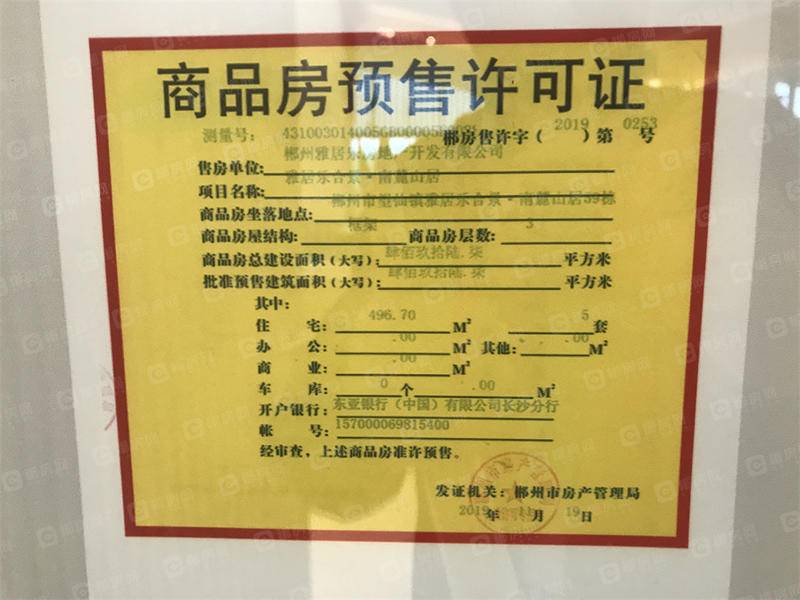 商品房预售许可证
测量号: 4310030140056B00005
郴房售许字(2019)第0253号
售房单位: 郴州雅居乐房地产开发有限公司
项目名称: 雅居乐合景·南麓山居
商品房坐落地点: 郴州市 仙镇雅居乐合景·南麓山居59栋
商品房屋结构: 框架 商品房层数: 3
商品房总建设面积(大写): 肆佰玖拾陆.柒 平方米
批准预售建筑面积(大写): 肆佰玖拾陆.柒 平方米
其中:
住 宅: 496.70 M² 5 套
办 公: .00 M² 其他: .00 M²
商 业: .00 M²
车 库: 0 个 .00 M²
开户银行: 东亚银行(中国)有限公司长沙分行
帐 号: 157000069815400
经审查,上述商品房准许预售。
发证机关: 郴州市房产管理局
2019年11月19日